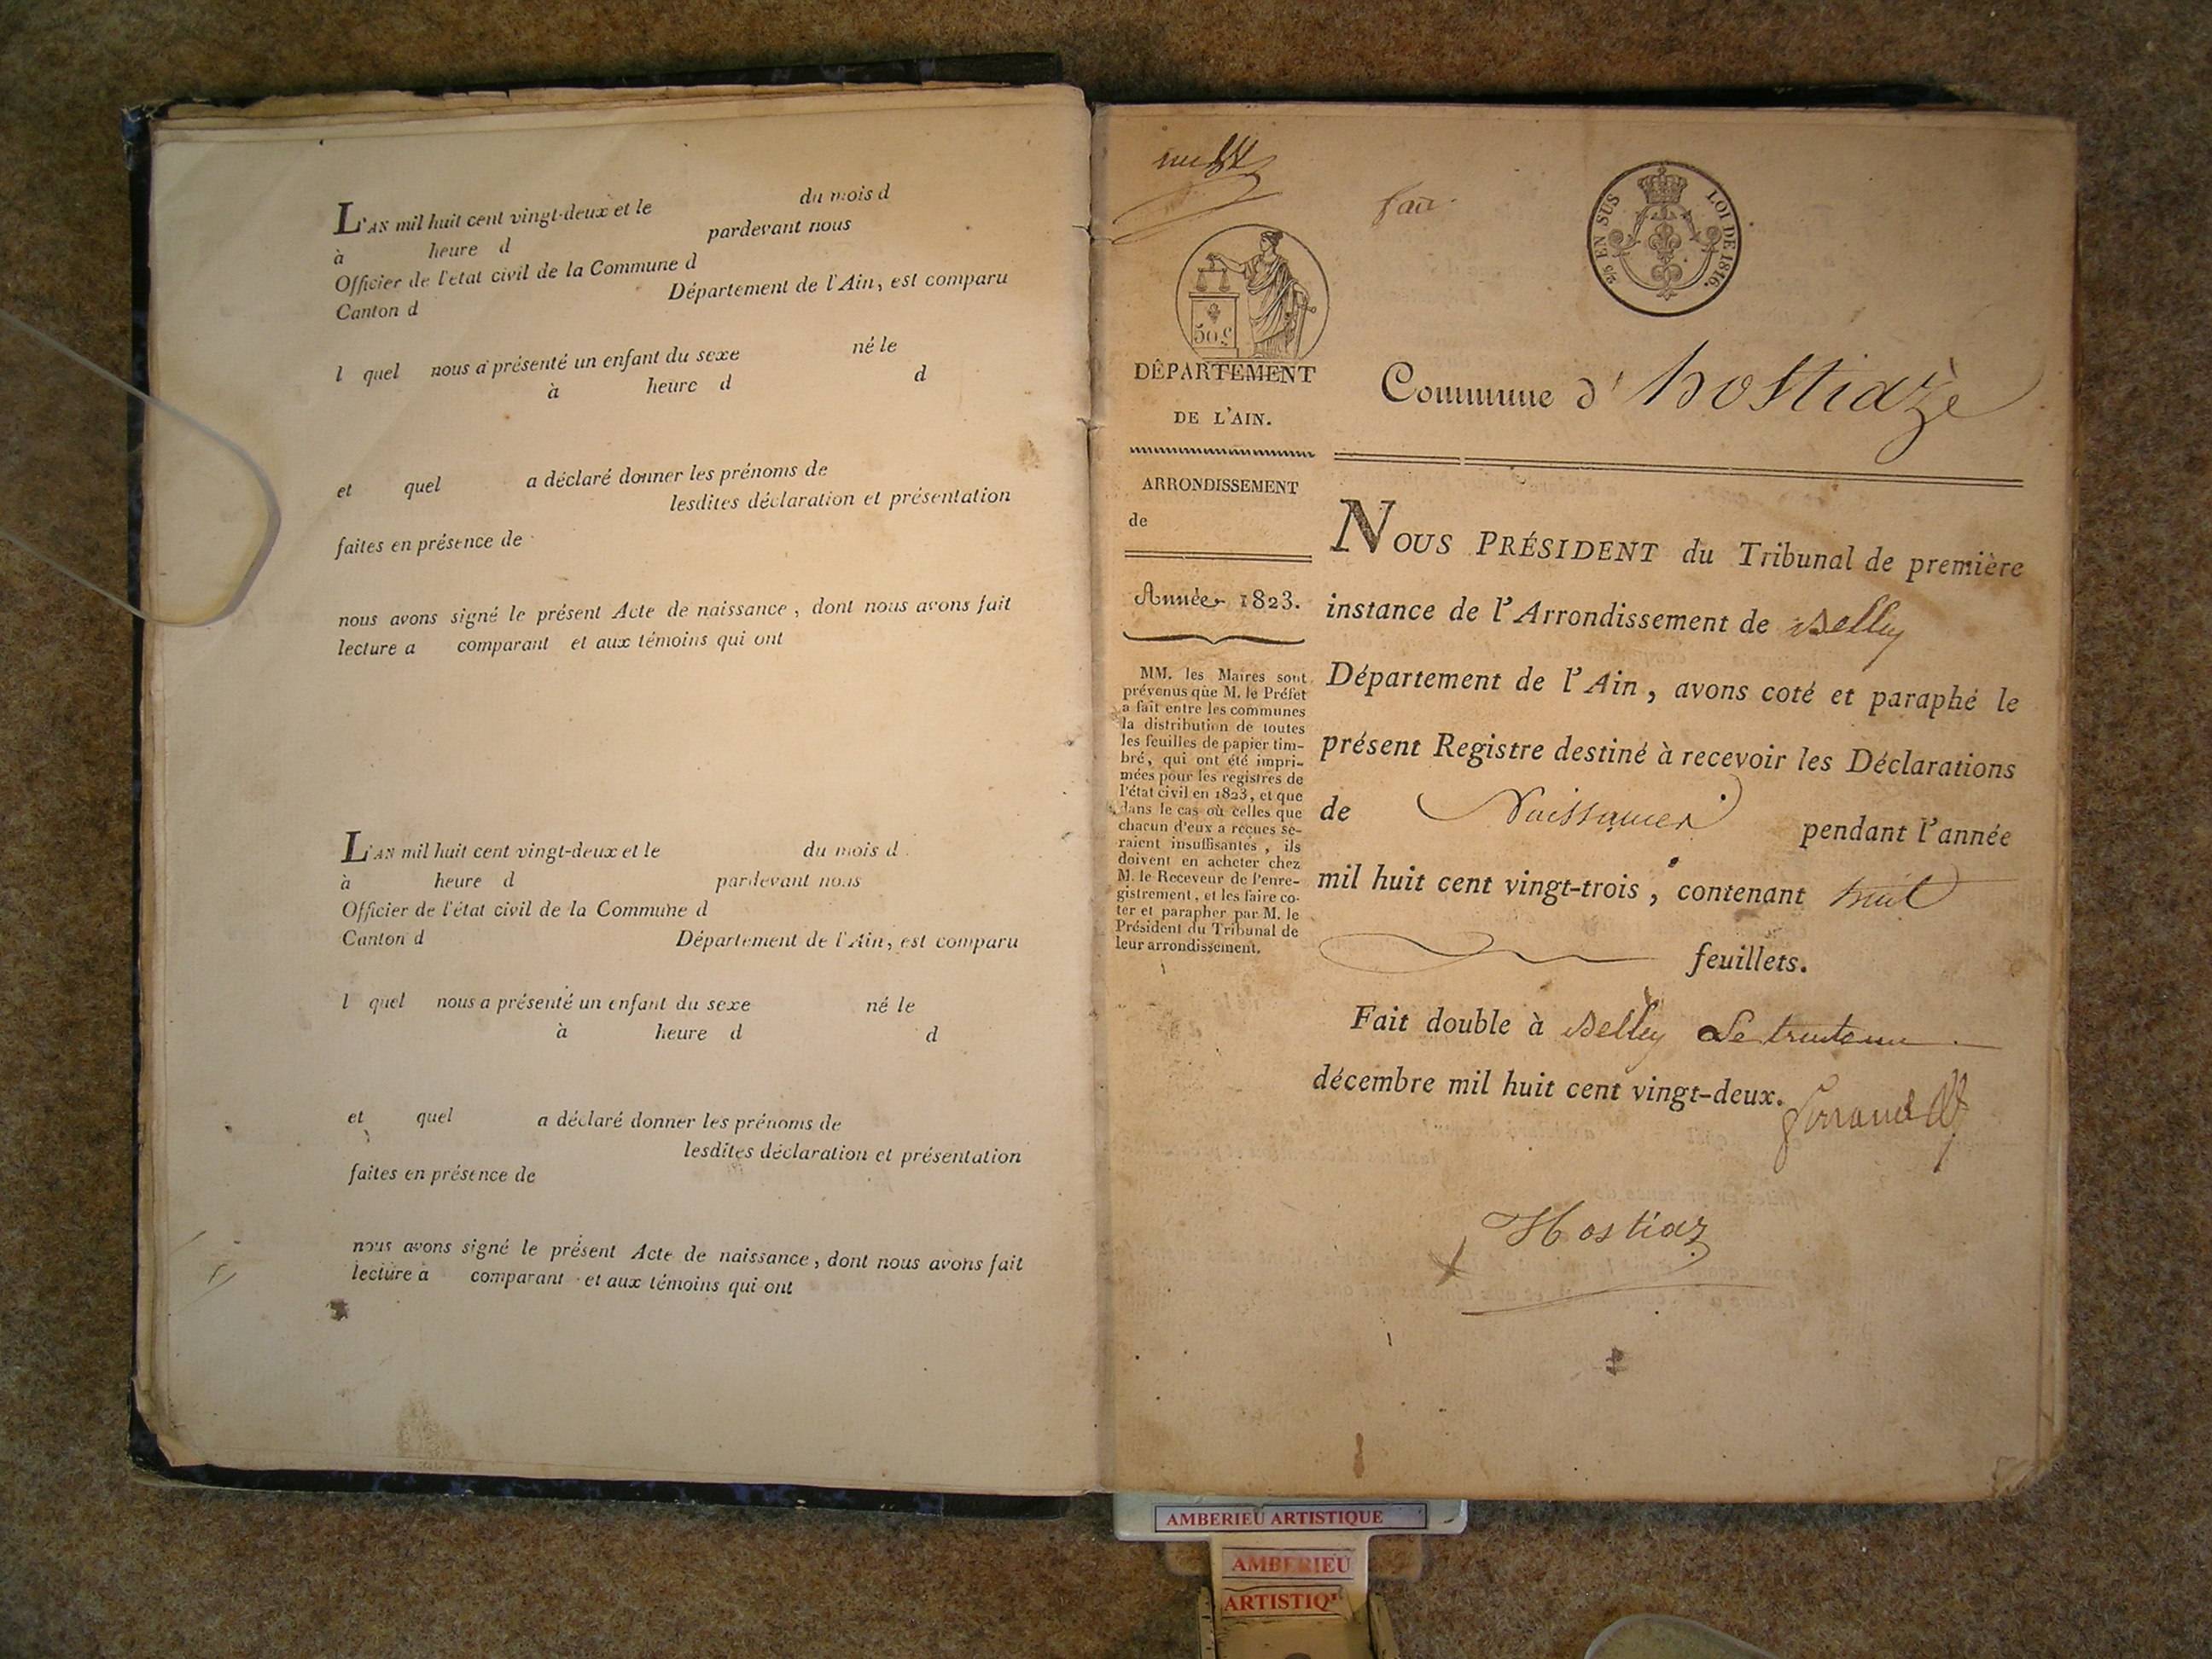 L'AN mil huit cent vingt-deux et le du mois d
à heure d pardevant nous
Officier de l'etat civil de la Commune d
Canton d Département de l'Ain, est comparu
l quel nous a présenté un enfant du sexe né le
à heure d d
et quel a déclaré donner les prénoms de
lesdites déclaration et présentation
faites en présence de
nous avons signé le présent Acte de naissance, dont nous avons fait
lecture a comparant et aux témoins qui ont
L'AN mil huit cent vingt-deux et le du mois d
à heure d pardevant nous
Officier de l'état civil de la Commune d
Canton d Département de l'Ain, est comparu
l quel nous a présenté un enfant du sexe né le
à heure d d
et quel a déclaré donner les prénoms de
lesdites déclaration et présentation
faites en présence de
nous avons signé le présent Acte de naissance, dont nous avons fait
lecture a comparant et aux témoins qui ont
EN SUS LOI DE 1816.
50 c
DÉPARTEMENT
DE L'AIN.
ARRONDISSEMENT
de
Année 1823.
MM. les Maires sont
prévenus que M. le Préfet
a fait entre les communes
la distribution de toutes
les feuilles de papier tim-
bré, qui ont été impri-
mées pour les registres de
l'état civil en 1823, et que
dans le cas où celles que
chacun d'eux a reçues se-
raient insuffisantes, ils
doivent en acheter chez
M. le Receveur de l'enre-
gistrement, et les faire co-
ter et parapher par M. le
Président du Tribunal de
leur arrondissement.
Commune d'hostiaze
NOUS PRÉSIDENT du Tribunal de première
instance de l'Arrondissement de Belley
Département de l'Ain, avons coté et paraphé le
présent Registre destiné à recevoir les Déclarations
de Naissances pendant l'année
mil huit cent vingt-trois, contenant huit
feuillets.
Fait double à Belley Le trente un
décembre mil huit cent vingt-deux.
Hostiaz
AMBERIEU ARTISTIQUE
AMBERIEU
ARTISTIQ